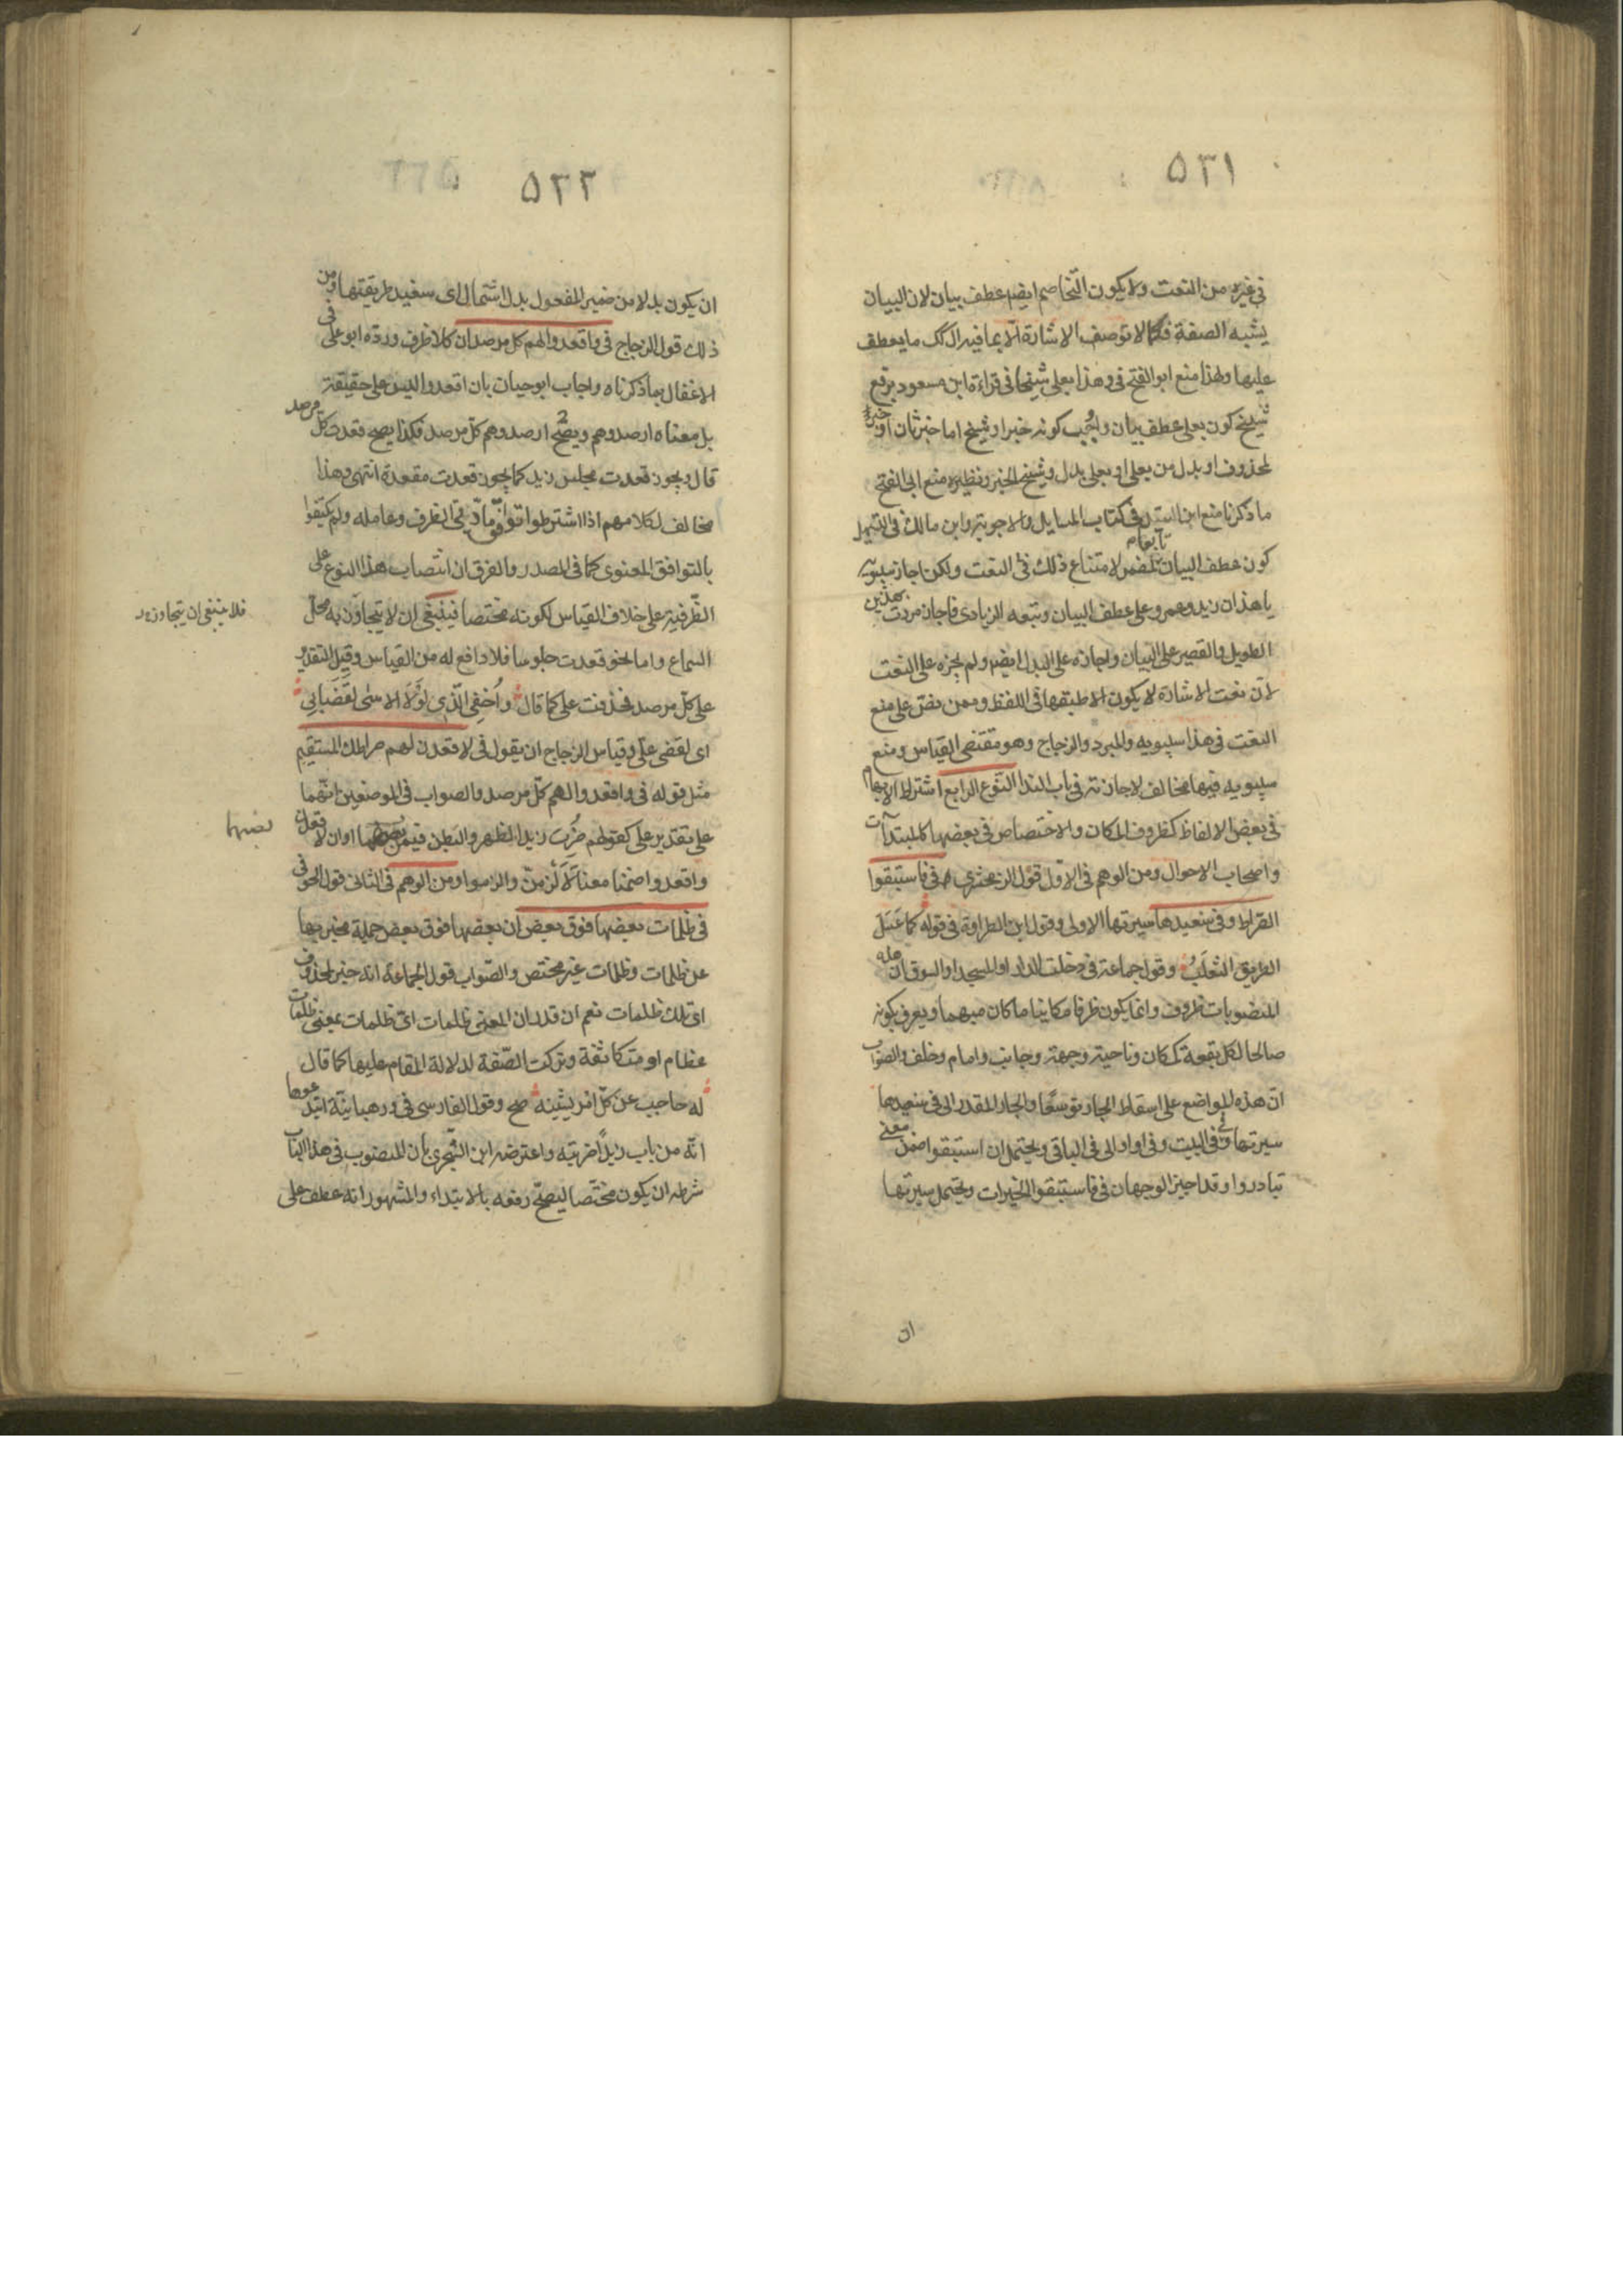 ٥٣١
فى غيره من النعت ولا يكون التخاصم ايضم عطف بيان لان البيان
يشبه الصفة فكما لا توصف الاشارة الّا بما فيه ال كك ما يعطف
عليها ولهذا منع ابو الفتح فى وهذا بعلى شيخا فى قراءة ابن مسعود برفع
شيخ كون بعلى عطف بيان واوجب كونه خبرا وشيخ اما خبر ثان او خبر
لمحذوف او بدل من بعلى او بعلى بدل وشيخ الخبر ونظيره منع ابى الفتح
ما ذكرنا منع ابن السيد فى كتاب المسايل والاجوبة وابن مالك فى التسهيل
كون عطف البيان تابعا لمضمر لامتناع ذلك فى النعت ولكن اجاز سيبويه
يا هذان زيد وعمرو على عطف البيان وتبعه الزيادى فاجاز مررت بهذين
الطويل والقصير على البيان واجازه على البدل ايضم ولم يجزه على النعت
لانّ نعت الاشارة لا يكون الا طبقها فى اللفظ وممن نصّ على منع
النعت فى هذا سيبويه والمبرد والزجاج وهو مقتضى القياس ومنع
سيبويه فيها مخالف لاجازته فى باب الندا النوع الرابع اشتراط الابهام
فى بعض الالفاظ كظروف المكان والاختصاص فى بعضها كالمبتدآت
واصحاب الاحوال ومن الوهم فى الاوّل قول الزمخشرى فى فاستبقوا
الصراط وفى سنعيدها سيرتها الاولى وقول ابن الطراوة فى قوله كما عَسَلَ
الطريق الثعلبُ وقول جماعة فى دخلت الدار او المسجد او السوق ان هذه
المنصوبات ظروف وانما يكون ظرفا مكانيا ما كان مبهما ويعرف بكونه
صالحا لكل بقعة كمكان وناحية وجهة وجانب وامام وخلف والصواب
انّ هذه المواضع على اسقاط الجار توسعًا والجار المقدر الى فى سنعيدها
سيرتها وفى فى البيت وفى او الى فى الباقى ويحتمل ان استبقوا ضمن معنى
تبادروا وقد اجيز الوجهان فى فاستبقوا الخيرات ويحتمل سيرتها
ان
٥٣٢
ان يكون بدلا من ضمير المفعول بدل اشتمال اى سنعيد طريقتها ومن
ذلك قول الزجاج فى واقعدوا لهم كل مرصد ان كلا ظرف وردّه ابو على فى
الاغفال بما ذكرناه واجاب ابو حيان بان اقعدوا ليس على حقيقته
بل معناه ارصدوهم ويصحّ ارصدوهم كلّ مرصد فكذا يصح قعدت كلّ مرصد
قال ويجوز قعدت مجلس زيد كما يجوز قعدت مقعده انتهى وهذا
مخالف لكلامهم اذا اشترطوا توافق مادّتى الظرف وعامله ولم يكتفوا
بالتوافق المعنوى كما فى المصدر والفرق ان انتصاب هذا النوع على
الظّرفية على خلاف القياس لكونه مختصا فينبغى ان لا يتجاوز به محلّ
فلا ينبغى ان يتجاوز به
السماع واما نحو قعدت جلوسا فلا دافع له من القياس وقيل التقدير
على كلّ مرصد فحذفت على كما قال وأُخفى الّذى لَوْلَا الاسَى لقَضَانِى
اى لقضى علىّ وقياس الزجاج ان يقول فى لاقعدن لهم صراطك المستقيم
مثل قوله فى واقعدوا لهم كلّ مرصد والصواب فى الموضعين انّهما
على تقدير على كقولهم ضُرِبَ زيد الظهر والبطن فيمن نصبهما او ان لاقعدن
نصبهما
واقعدوا ضمنا معنا لَأَلْزَمنّ والزموا ومن الوهم فى الثانى قول الحوفى
فى ظلمات بعضها فوق بعض ان بعضها فوق بعض جملة مخبر بها
عن ظلمات وظلمات غير مختص والصّواب قول الجماعة انه خبر لمحذوف
اى تلك ظلمات نعم ان قدر ان المعنى ظلمات اىّ ظلمات بمعنى ظلمات
عظام او متكاثفة وتركت الصّفة لدلالة المقام عليها كما قال
له حاجب عن كلّ امر يشينه صح وقول الفارسى فى ورهبانيّة ابتدعوها
انّه من باب زيدًا ضربته واعترضه ابن الشّجرى بان المنصوب فى هذا الباب
شرطه ان يكون مختصّا ليصحّ رفعه بالابتداء والمشهور انه عطف على